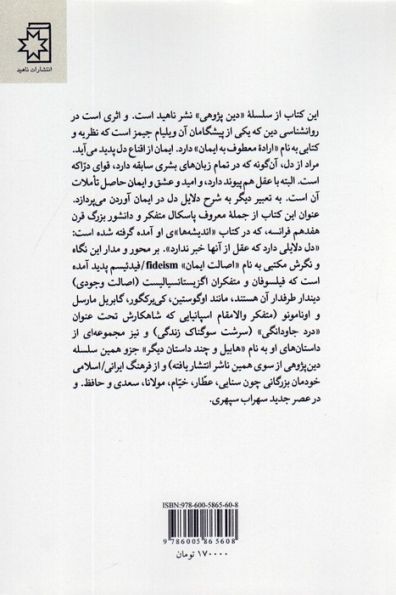 انتشارات ناهید
این کتاب از سلسلهٔ «دین پژوهی» نشر ناهید است. و اثری است در
روانشناسی دین که یکی از پیشگامان آن ویلیام جیمز است که نظریه و
کتابی به نام «ارادهٔ معطوف به ایمان» دارد. ایمان از اقناع دل پدید می‌آید.
مراد از دل، آن‌گونه که در تمام زبان‌های بشری سابقه دارد، قوای درّاکه
است. البته با عقل هم پیوند دارد، و امید و عشق و ایمان حاصل تأملات
آن است. به تعبیر دیگر به شرح دلایل دل در ایمان آوردن می‌پردازد.
عنوان این کتاب از جملهٔ معروف پاسکال متفکر و دانشور بزرگ قرن
هفدهم فرانسه، که در کتاب «اندیشه‌ها»ی او آمده گرفته شده است:
«دل دلایلی دارد که عقل از آنها خبر ندارد». بر محور و مدار این نگاه
و نگرش مکتبی به نام «اصالت ایمان» fideism/فیدئیسم پدید آمده
است که فیلسوفان و متفکران اگزیستانسیالیست (اصالت وجودی)
دیندار طرفدار آن هستند، مانند اوگوستین، کی‌یرکگور، گابریل مارسل
و اونامونو (متفکر والامقام اسپانیایی که شاهکارش تحت عنوان
«درد جاودانگی» (سرشت سوگناک زندگی) و نیز مجموعه‌ای از
داستان‌های او به نام «هابیل و چند داستان دیگر» جزو همین سلسله
دین‌پژوهی از سوی همین ناشر انتشار یافته) و از فرهنگ ایرانی/اسلامی
خودمان بزرگانی چون سنایی، عطّار، خیّام، مولانا، سعدی و حافظ. و
در عصر جدید سهراب سپهری.
ISBN:978-600-5865-60-8
9 786005 865608
۱۷۰۰۰۰ تومان